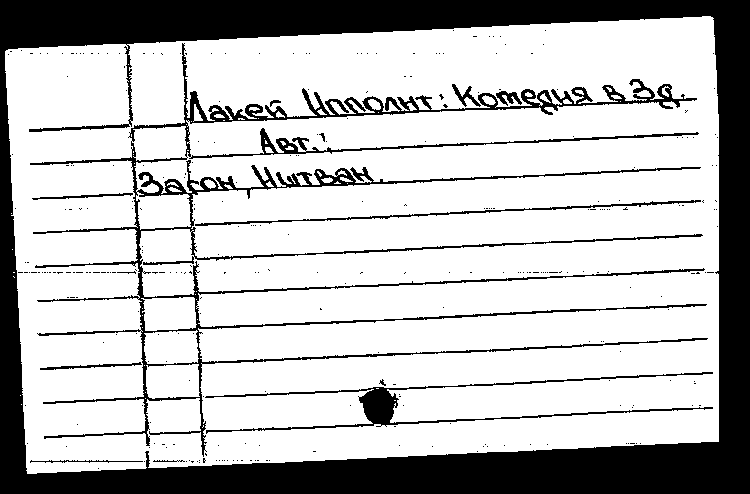 Лакей Ипполит: Комедия в 3д.
Авт.:
Загон, Иштван.